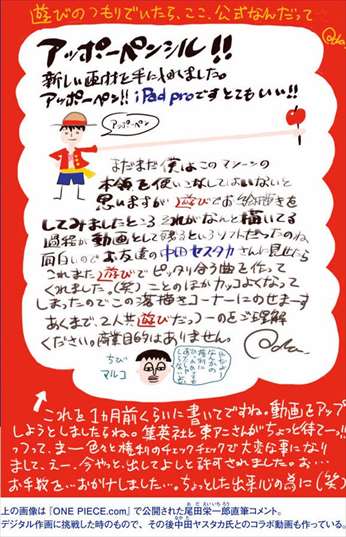 遊びのつもりでいたら、ここ、公式なんだって
Oda.
アッポーペンシル!!
新しい画材を手に入れました。
アッポーペン!! iPad proですとてもいい!!
アッポーペン
まだまだ僕はこのマシーンの
本領を使いこなしてはいないと
思いますが遊びでお絵描きを
してみましたところそれがなんと描いてる
過程が動画として残るというソフトだったのね、
面白いのでお友達の中田ヤスタカさんに見せたら
これまた遊びでピッタリ合う曲を作って
くれました。(笑)ことのほかカッコよくなって
しまったのでこの落描きコーナーにのせまーす
あくまで、2人共遊びだっつーのをご理解
ください。商業目的はありません。
Oda.
ちび
マルコ
これを1カ月前くらいに書いてですね。動画をアップ
しようとしましたらね。集英社と東アニさんがちょっと待てーっ!!
っつって、まー色々と権利のチェックチェックで大変な事になり
まして、えー、今やっと、出してよしと許されました。お…
お手数を…おかけしました…。ちょっとした出来心の為に(笑)
上の画像は『ONE PIECE.com』で公開された尾田栄一郎直筆コメント。
デジタル作画に挑戦した時のもので、その後中田ヤスタカ氏とのコラボ動画も作っている。